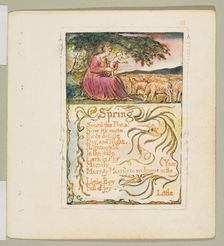 Spring
Sound the Flute!
Now it's mute.
Birds delight
Day and Night.
Nightingale
In the dale
Lark in Sky
Merrily
Merrily Merrily to welcome in the Year
Little Boy
Full of joy.
Little